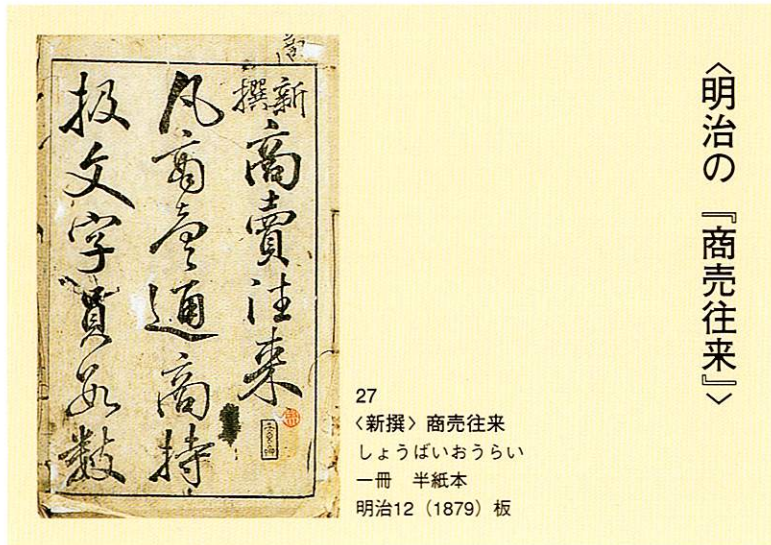 〈明治の『商売往来』〉
新撰
商賣往来
凡商賣通商持
扱文字 数
27
〈新撰〉商売往来
しょうばいおうらい
一冊　半紙本
明治12（1879）板